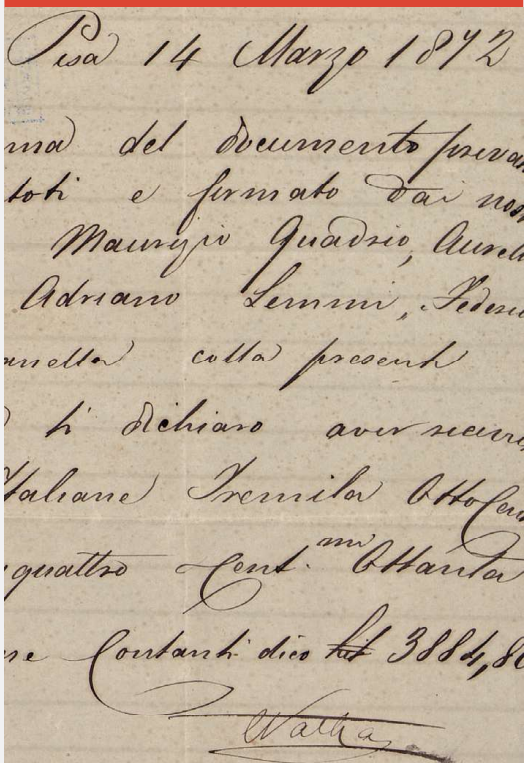 Pisa 14 Marzo 1872
ma del documento priva
toti e firmato dai nos
Maurizio Quadrio, Aureli
Adriano Lemmi, Federi
anella colla presenti
ti dichiaro aver
Italiane Tremila Otto Cen
quattro Cent.mi Ottanta
Contanti dico 3884,80
Nathan